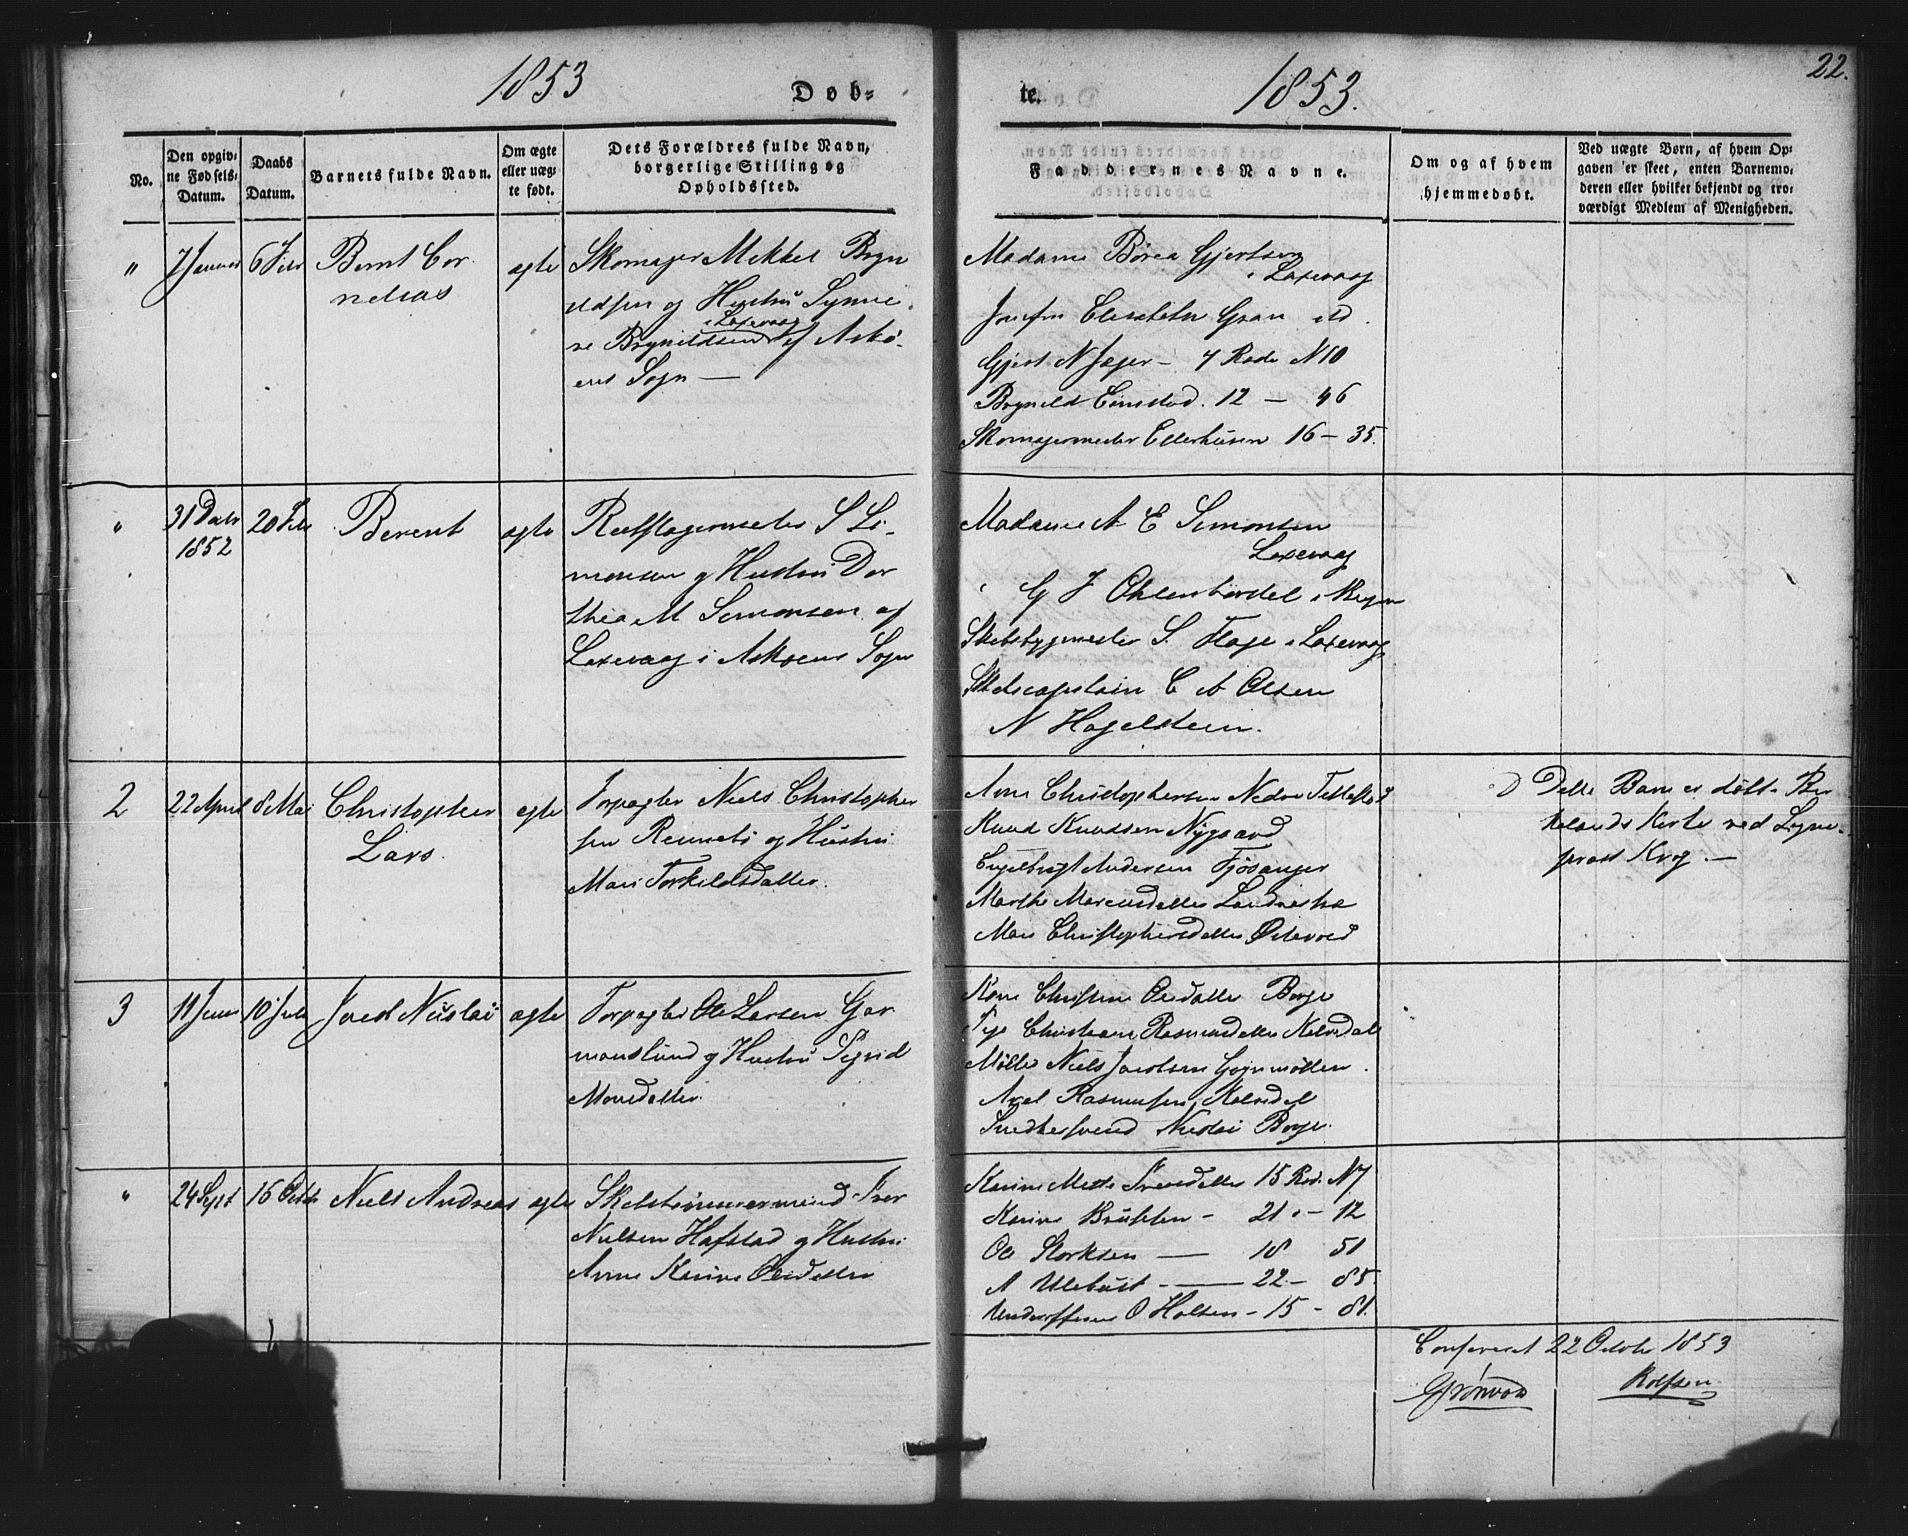 1853
Døb-
te.
1853.
22.
No.
Den opgiv-
ne Fødsels-
Datum.
Daabs
Datum.
Barnets fulde Navn.
Om ægte
eller uæg-
te født.
Dets Forældres fulde Navn,
borgerlige Stilling og
Opholdssted.
Faddernes Navne.
Om og af hvem
hjemmedøbt.
Ved uægte Børn, af hvem Op-
gaven er skeet, enten Barnemo-
deren eller hvilket bekjendt og tro-
værdigt Medlem af Menigheden.
" 7 Januar 6 Febr Bernt Cor
nelius
ægte
Skomager Mikkel Bryn
ildsen og Hustru Synne
ve Brynildsen i Laxevaag af Askø-
ens Sogn —
Madame Børea Gjertsen
i Laxevaag
Elisabeth Gran
Gjert N Jæger - 7 Rode N 10
Brynild Einstad. 12 — 46
Skomagermester Ellerhusen 16 - 35.
" 31 Decbr
1852
20 Feb
Berent
ægte
Reebslagermester S Si-
monsen og Hustru Dor
thea M Simonsen af
Laxevaag i Askøens Sogn
Madame A E Simonsen
Laxevaag
G J Ohlenbördel i Bergen
Skibsbygmester S. Flage i Laxevaag
Skibscapitain C A Olsen
N Hagelsteen.
2 22 April 8 Mai Christopher
Lars.
ægte
Forpagter Niels Christopher
sen og Hustru
Mari Torkildsdatter.
Arne Christophersen Nedre Tittestad
Knud Knudsen Nygaard
Engelbrigt Andersen Fjøsanger
Marthe Marcusdatter
Mari Christophersdatter
Dette Barn er døbt i Bir
kelands Kirke ved Sogne-
præst Krog. —
3 11 Juni 10 Juli Jacob Nicolai ægte
Forpagter Ole Larsen Gar
manslund og Hustru Sigrid
Monsdatter.
Kone Christine Olsdatter Borge
Pige Christiane Rasmusdatter Kalvedal
Møller Niels Jacobsen
Axel Rasmussen Kalvedal
Snedkersvend Nicolai Borge.
" 24 Sept 16 Octb Niels Andreas ægte
Skibstømmermand Iver
Nielsen Hafstad og Hustru
Anne Karine Olsdatter
Karine Mette Iversdatter 15 Rod. N 7
Karine - 21 - 12
Ole Storksen — 18 51
A Ulebust — 22 - 85.
Underofficer O Halsen - 15 - 81.
Confereret 22 Octobr 1853
Grönvold
Rolfsen